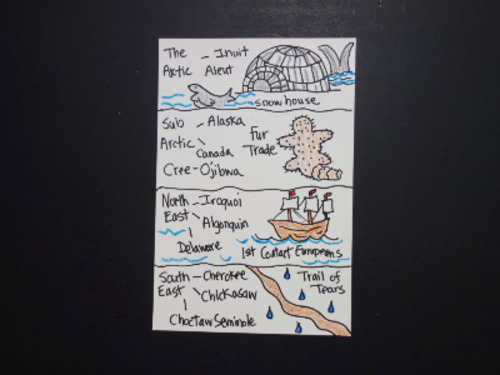 The - Inuit
Arctic Aleut
snowhouse
Sub - Alaska
Arctic - Canada
Cree - Ojibwa
Fur
Trade
North - Iraquoi
East - Algonquin
Delaware
1st Contact Europeans
South - Cherokee
East - Chickasaw
Choctaw Seminole
Trail of
Tears